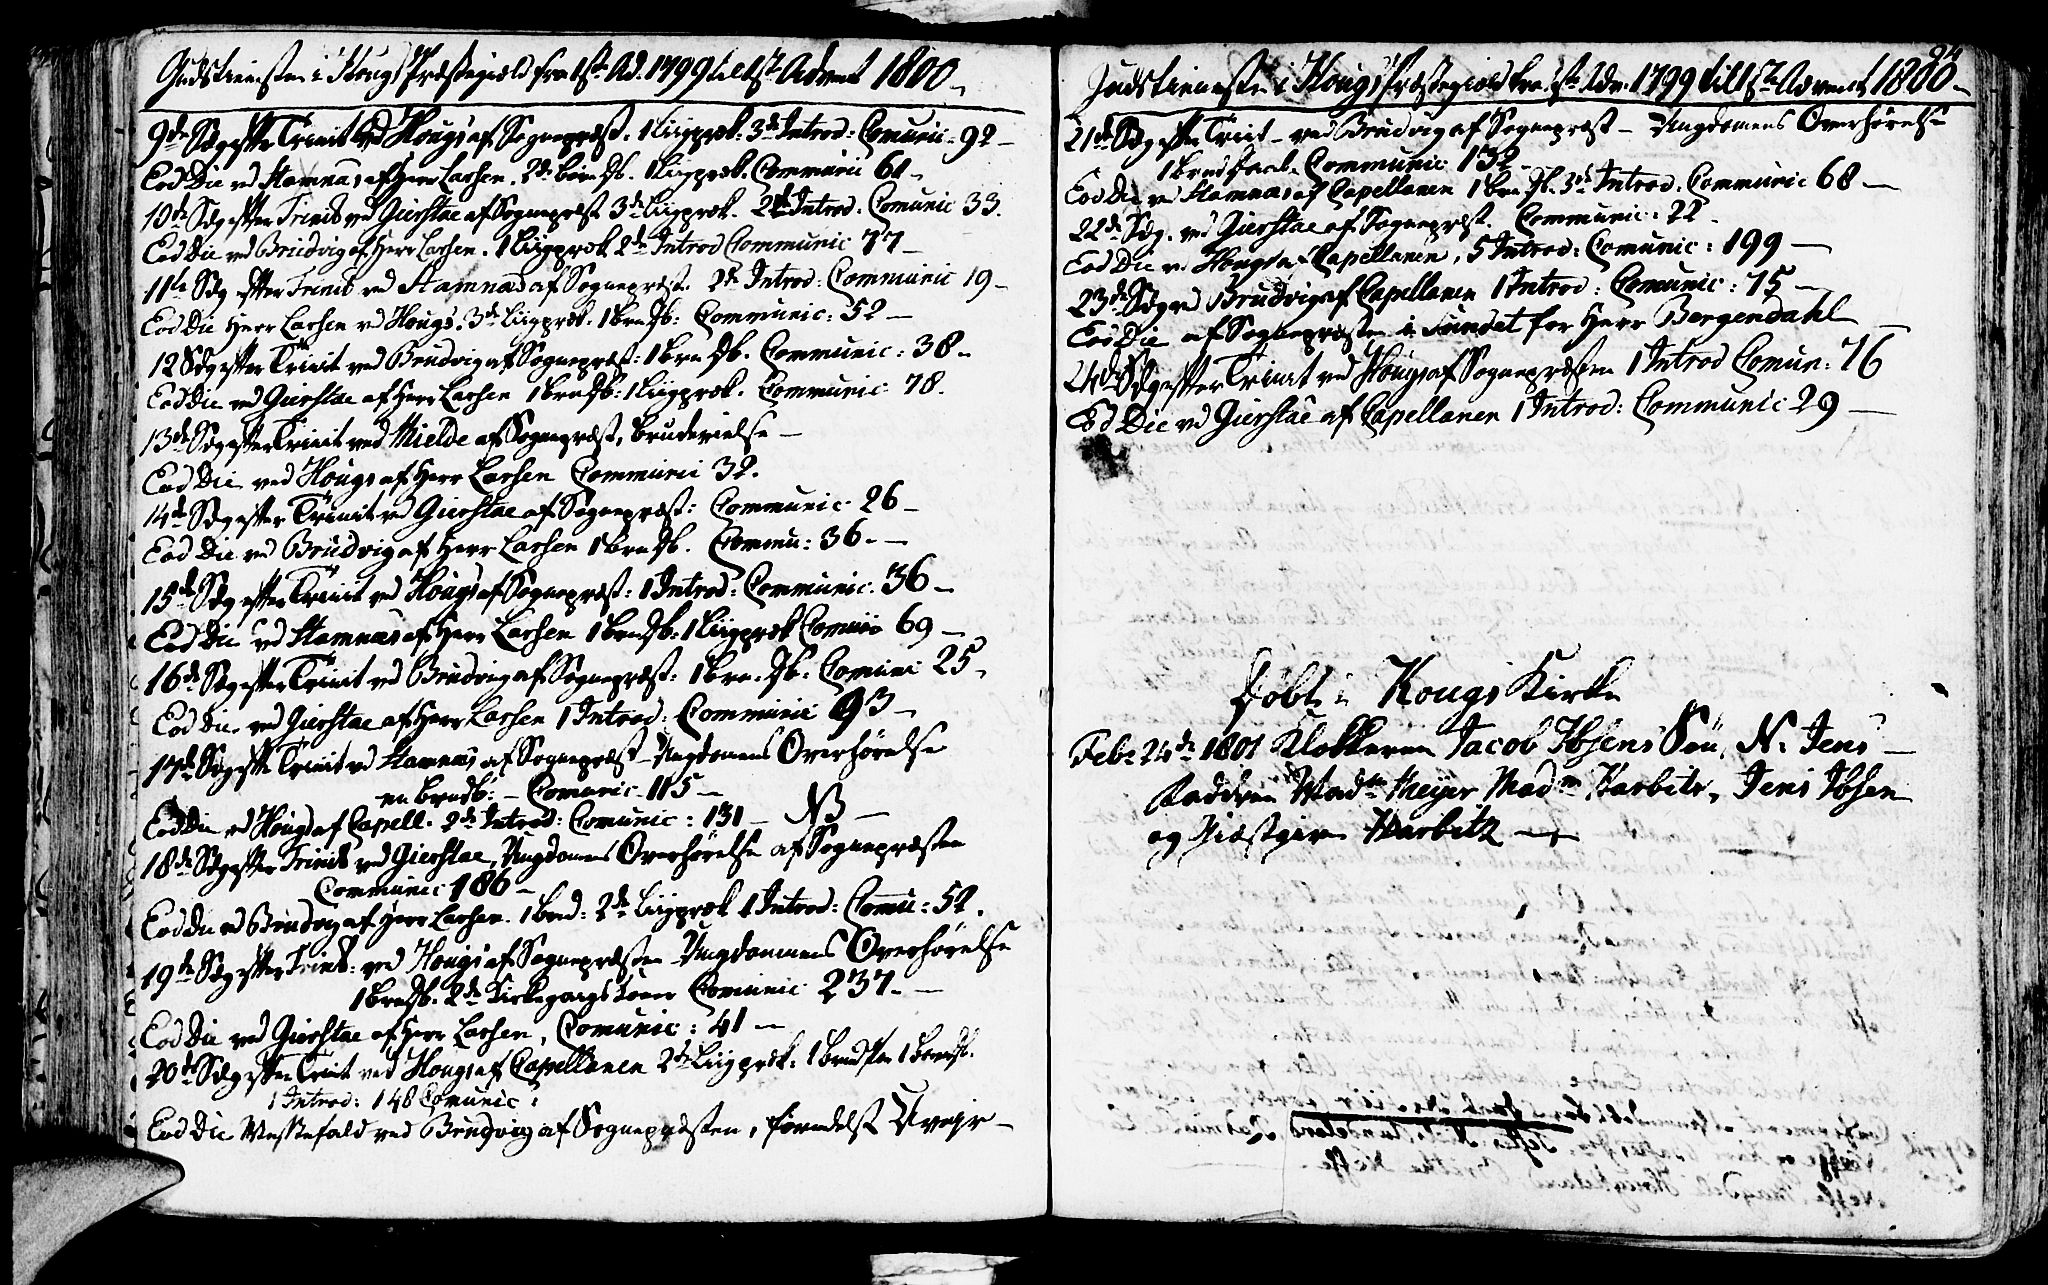 Gudstienesten i Hougs Præstegield fra 1ste Ad. 1799 til 1ste Advent 1800.
9de Søg efter Trinit ved Hougs af Sognepræst. 1 Liigpræk: 3de Introd: Comunic: 92 -
Eod Die ved Stamnas af Herr Larsen. 2de 1 Liigpræk. Communic 61 -
10de Søg efter Trinit ved Gierstae af Sognepræst 3de Liigpræk. 2de Introd. Comunic 33.
Eod Die ved Brudvig af Herr Larsen. 1 Liigpræk 2de Introd Communic 77 -
11te Søg efter Trinit ved Stamnas af Sognepræst. 2de Introd: Communic 19 -
Eod Die Herr Larsen ved Hougs. 3de Liigpræk. 1 Barn Db: Communic: 52 -
12 Søg efter Trinit ved Brudvig af Sognepræst: 1 Barn Db. Communic: 38 -
Eod Die ved Gierstae af Herr Larsen 1 Barn Db: 1 Liigpræk. Communic: 78.
13de Søg efter Trinit ved Mielde af Sognepræst, Brudevielse -
Eod Die ved Hougs af Herr Larsen Communic 32.
14de Søg efter Trinit ved Gierstae af Sognepræst: Communic: 26 -
Eod Die ved Brudvig af Herr Larsen 1 Barn Db. Commu: 36. -
15de Søg efter Trinit ved Hougs af Sognepræst: 1 Introd: Communic. 36 -
Eod Die ved Stamnas af Herr Larsen 1 Barn Db: 1 Liigpræk Comunic 69 -
16de Søg efter Trinit ved Brudvig af Sognepræst: 1 Barn Db. Comuni 25 -
Eod Die ved Gierstae af Herr Larsen 1 Introd: Communic 93 -
17de Søg efter Trinit ved Stamnas af Sognepræst - Ungdomens Overhørelse
- Comunic 115 -
Eod Die ved Hougs af Capell. 2de Introd: Comunic: 131 - NB -
18de Søg efter Trinit ved Gierstae, Ungdomens Overhørelse af Sognepræsten
Communic 186 -
Eod Die ved Brudvig af Herr Larsen. 2de Liigpræk 1 Introd: Comu: 52.
19de Søg efter Trinit: ved Hougs af Sognepræsten Ungdommens Overhørelse
1 Barn Db. 2de Kirkegangs Koner Comunic 237. -
Eod Die ved Gierstae af Herr Larsen, Comunic: 41 -
20de Søg efter Trinit ved Hougs af Capellanen 2de Liigpræk:
1 Introd: 148 Comunic:
Eod Die Messefald ved Brudvig af Sognepræsten, formedelst Uvejr -
94
Gudstienesten i Hougs Præstegield fra 1ste Adv. 1799 till 1ste Advent 1800 -
21de Søg efter Trinit - ved Brudvig af Sognepræst - Ungdomens Overhørelse
Communic: 132 -
Eod Die ved Stamnas af Capellanen 1 Barn Db. 3de Introd. Communic 68 -
22de Søg. ved Gierstae af Sognepræst. Communic: 22 -
Eod Die v. Hougs af Capellanen, 5 Introd: Comunic: 199 -
23de Søg ved Brudvig af Capellanen 1 Introd: Comunic: 75 -
Eod Die af Sognepræsten i Sundet for Herr Bergendahl -
24de Søg efter Trinit ved Hougs af Sognepræsten 1 Introd Comun: 76
Eod Die ved Gierstae af Capellanen 1 Introd: Communic 29 -
Døbt i Hougs Kirke
Feb: 24de 1801 Klokkeren Jacob Ibsens Søn, N. Jens -
Faddren Madm Meijer Madm Harbitz, Jens Ibsen
og Giæstgiver Harbitz -